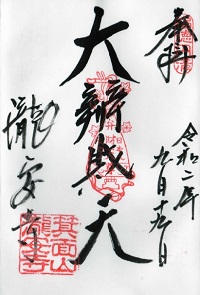 奉拝
令和二年
九月十九日
大辯財天
瀧安寺
箕面山
瀧安寺